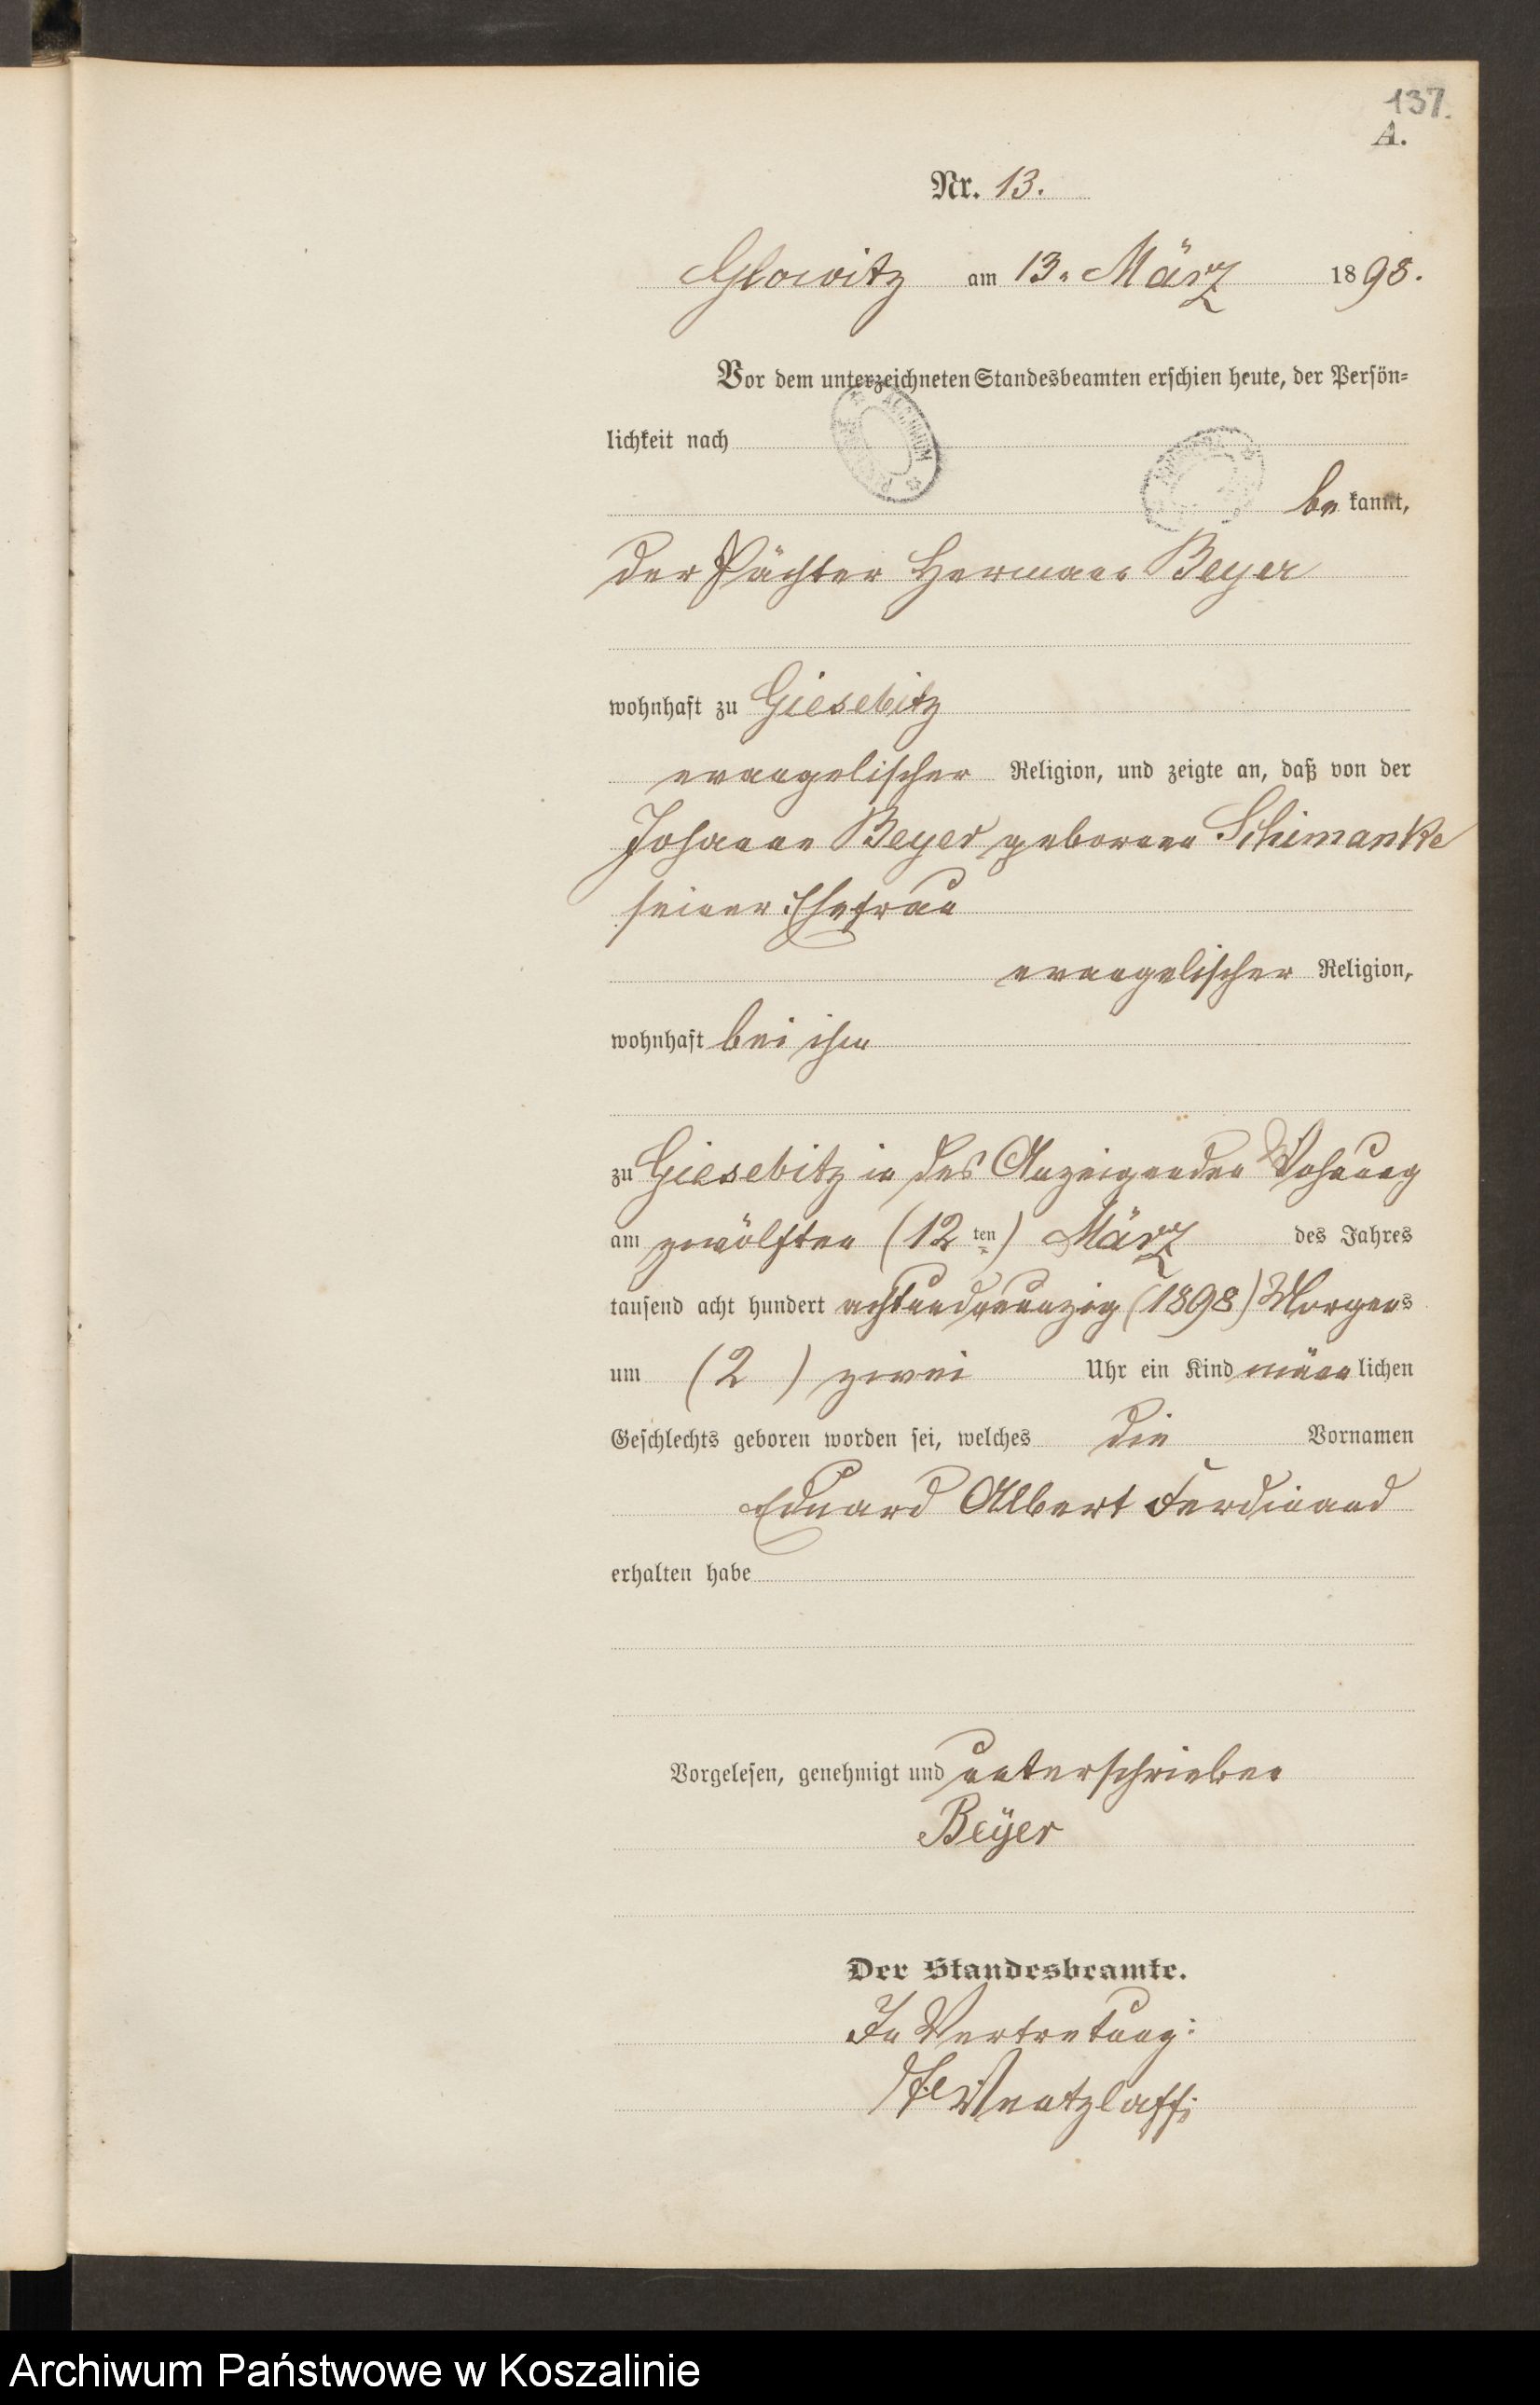 137.
A.
Nr. 13.
Glowitz am 13. März 1898.
Vor dem unterzeichneten Standesbeamten erschien heute, der Persön=
lichkeit nach
be kannt,
der Pächter Hermann Beyer
wohnhaft zu Giesebitz
evangelischer Religion, und zeigte an, daß von der
Johanne Beyer geborenen Schimanke
seiner Ehefrau
evangelischer Religion,
wohnhaft bei ihm
zu Giesebitz in des Anzeigenden Wohnung
am zwölften (12ten) März des Jahres
tausend acht hundert achtundneunzig (1898) Morgens
um (2) zwei Uhr ein Kind männlichen
Geschlechts geboren worden sei, welches die Vornamen
Eduard Albert Ferdinand
erhalten habe
Vorgelesen, genehmigt und unterschrieben
Beÿer
Der Standesbeamte.
In Vertretung:
Wentzlaff
Archiwum Państwowe w Koszalinie